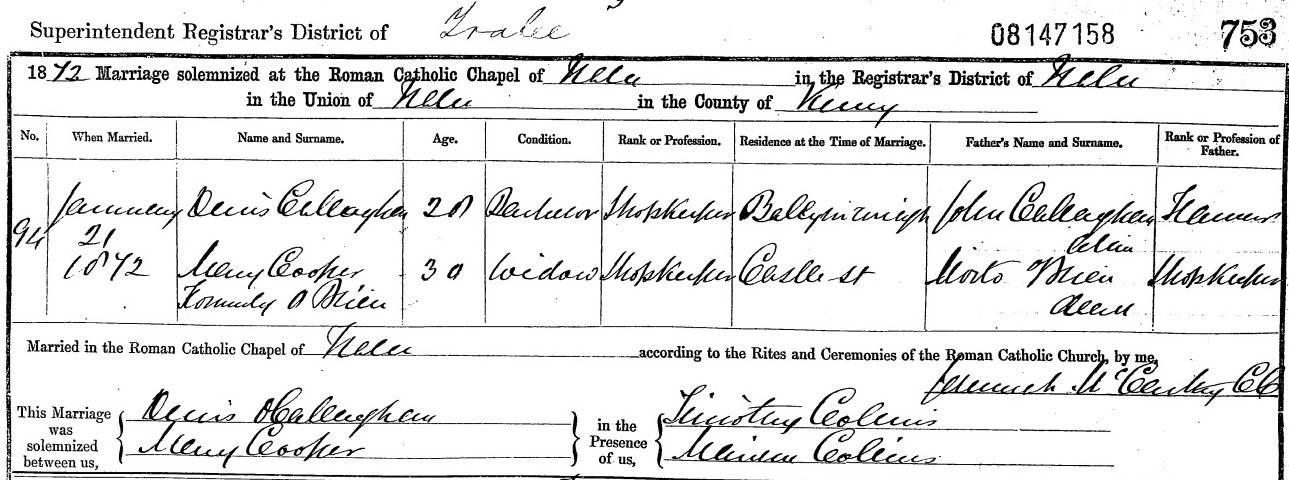 Superintendent Registrar's District of Tralee 08147158 753
1872 Marriage solemnized at the Roman Catholic Chapel of Tralee in the Registrar's District of Tralee
in the Union of Tralee in the County of Kerry
No. When Married. Name and Surname. Age. Condition. Rank or Profession. Residence at the Time of Marriage. Father's Name and Surname. Rank or Profession of Father.
94 January 21 1872 Denis Callaghan 28 Bachelor Shopkeeper John Callaghan alive Farmer
Mary Cooper Formerly O Brien 30 Widow Shopkeeper Castle st O'Brien Shopkeeper
Married in the Roman Catholic Chapel of Tralee according to the Rites and Ceremonies of the Roman Catholic Church, by me,
Jeremiah McCarthy CC
This Marriage was solemnized between us, Denis OCallaghan Mary Cooper in the Presence of us, Timothy Collins Collins